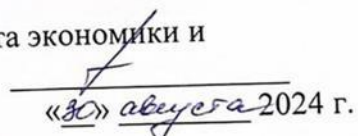 та экономики и
«30» августа 2024 г.